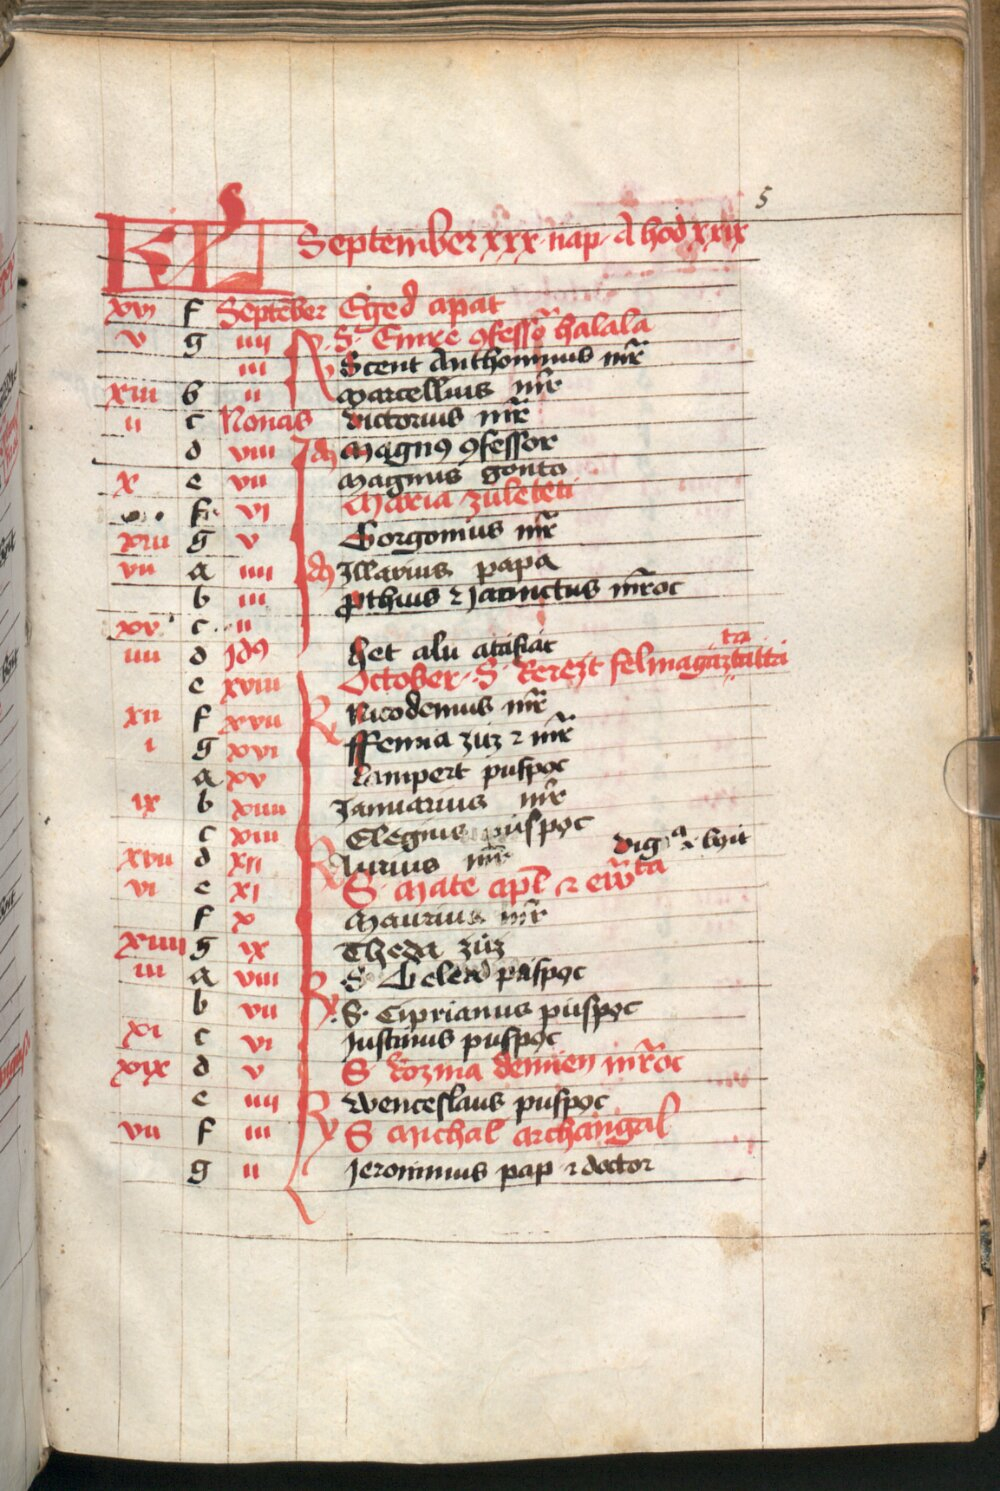 5
KL September xxx nap A hod xxix
xvi f September Eged apat
v g iiii S Emre 9fessor halala
iii Scent Anthominus mr
xiii b ii Marcellius mr
ii c Nonas victorius mr
d viii Magn9 9fessor
x e vii Magnus gonto
f vi Maria zuleteti
xiii g v Gorgonius mr
vii a iiii Illarius papa
b iii Pthius ⁊ Jacinctus mroc
xv c ii
iiii d Id9 het alu atafiat
e xviii October S Kerezt felmagaztatta
xii f xvii Nicodemus mr
i g xvi ffemia zűz ⁊ mr
a xv Lampert puspoc
ix b xiiii Januarius mr
c xiii Elegius puspoc
xvii d xii Aurius mr vig a ⁊ byit
vi e xi S Mate apl ⁊ ewta
f x Maurius mr
xiiii g ix Theda zűz
iii a viii S Gelerd puspoc
b vii S Ciprianus puspoc
xi c vi Justinus puspoc
xix d v S Kozma demien mroc
e iiii Wenceslaus puspoc
vii f iii S Michal archangal
g ii Jeronimus pap ⁊ doctor